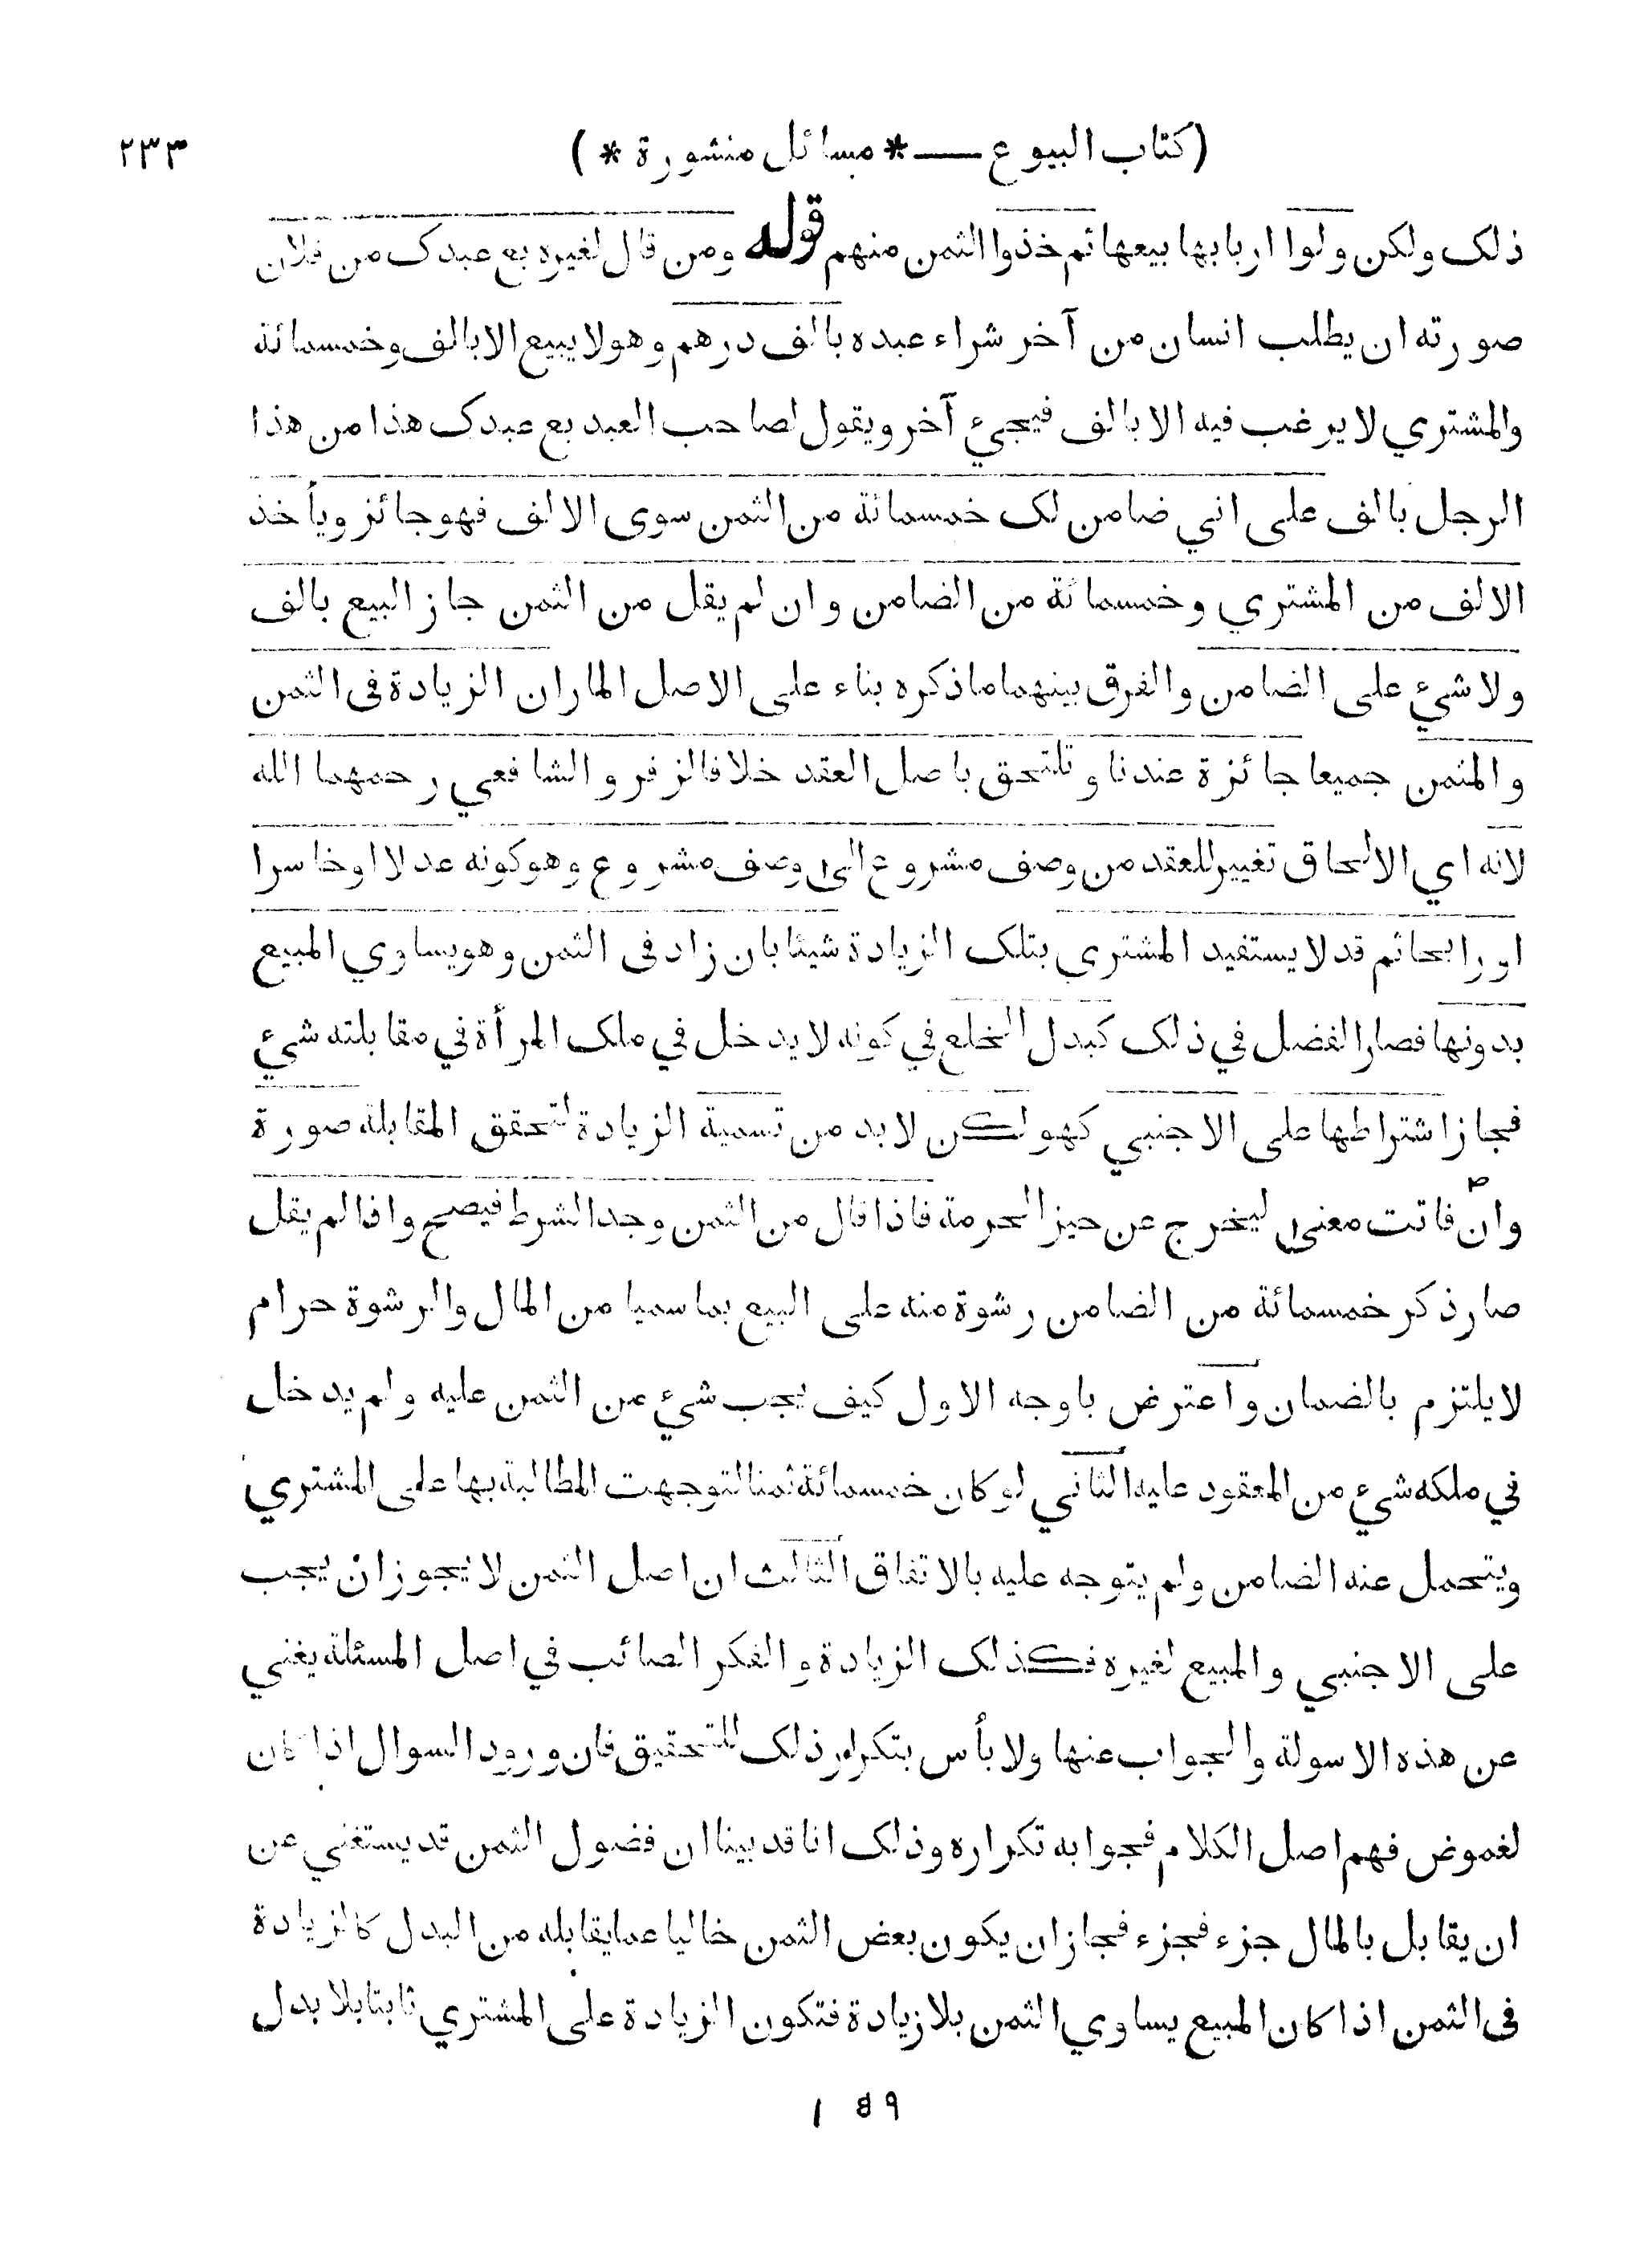 (كتاب البيوع ــــ * مسائل منثورة *) ٢٣٣
ذلك ولكن ولوا اربابها بيعها ثم خذوا الثمن منهم قوله ومن قال لغيره بع عبدك من فلان
صورته ان يطلب انسان من آخر شراء عبده بالف درهم وهو لا يبيع الا بالف وخمسمائة
والمشتري لا يرغب فيه الا بالف فيجيء آخر ويقول لصاحب العبد بع عبدك هذا من هذا
الرجل بالف على اني ضامن لك خمسمائة من الثمن سوى الالف فهو جائز ويأخذ
الالف من المشتري وخمسمائة من الضامن وان لم يقل من الثمن جاز البيع بالف
ولا شيء على الضامن والفرق بينهما ما ذكره بناء على الاصل المار ان الزيادة في الثمن
والمثمن جميعا جائزة عندنا وتلتحق باصل العقد خلافا لزفر والشافعي رحمهما الله
لانه اي الالحاق تغيير للعقد من وصف مشروع الى وصف مشروع وهو كونه عدلا او خاسرا
او رابحا ثم قد لا يستفيد المشتري بتلك الزيادة شيئا بان زاد في الثمن وهو يساوي المبيع
بدونها فصار الفضل في ذلك كبدل الخلع في كونه لا يدخل في ملك المرأة في مقابلته شيء
فجاز اشتراطها على الاجنبي كهو لكن لا بد من تسمية الزيادة لتحقق المقابلة صورة
وان فاتت معنى ليخرج عن حيز الحرمة فاذا قال من الثمن وجد الشرط فيصح واذا لم يقل
صار ذكر خمسمائة من الضامن رشوة منه على البيع بما سميا من المال والرشوة حرام
لا يلتزم بالضمان واعترض باوجه الاول كيف يجب شيء من الثمن عليه ولم يدخل
في ملكه شيء من المعقود عليه الثاني لو كان خمسمائة ثمنا لتوجهت المطالبة بها على المشتري
ويتحمل عنه الضامن ولم يتوجه عليه بالاتفاق الثالث ان اصل الثمن لا يجوز ان يجب
على الاجنبي والمبيع لغيره فكذلك الزيادة والفكر الصائب في اصل المسئلة يغني
عن هذه الاسولة والجواب عنها ولا بأس بتكرار ذلك للتحقيق فان ورود السوال اذا كان
لغموض فهم اصل الكلام فجوابه تكراره وذلك انا قد بينا ان فضول الثمن قد يستغني عن
ان يقابل بالمال جزء فجزء فجاز ان يكون بعض الثمن خاليا عما يقابله من البدل كالزيادة
في الثمن اذا كان المبيع يساوي الثمن بلا زيادة فتكون الزيادة على المشتري ثابتا بلا بدل